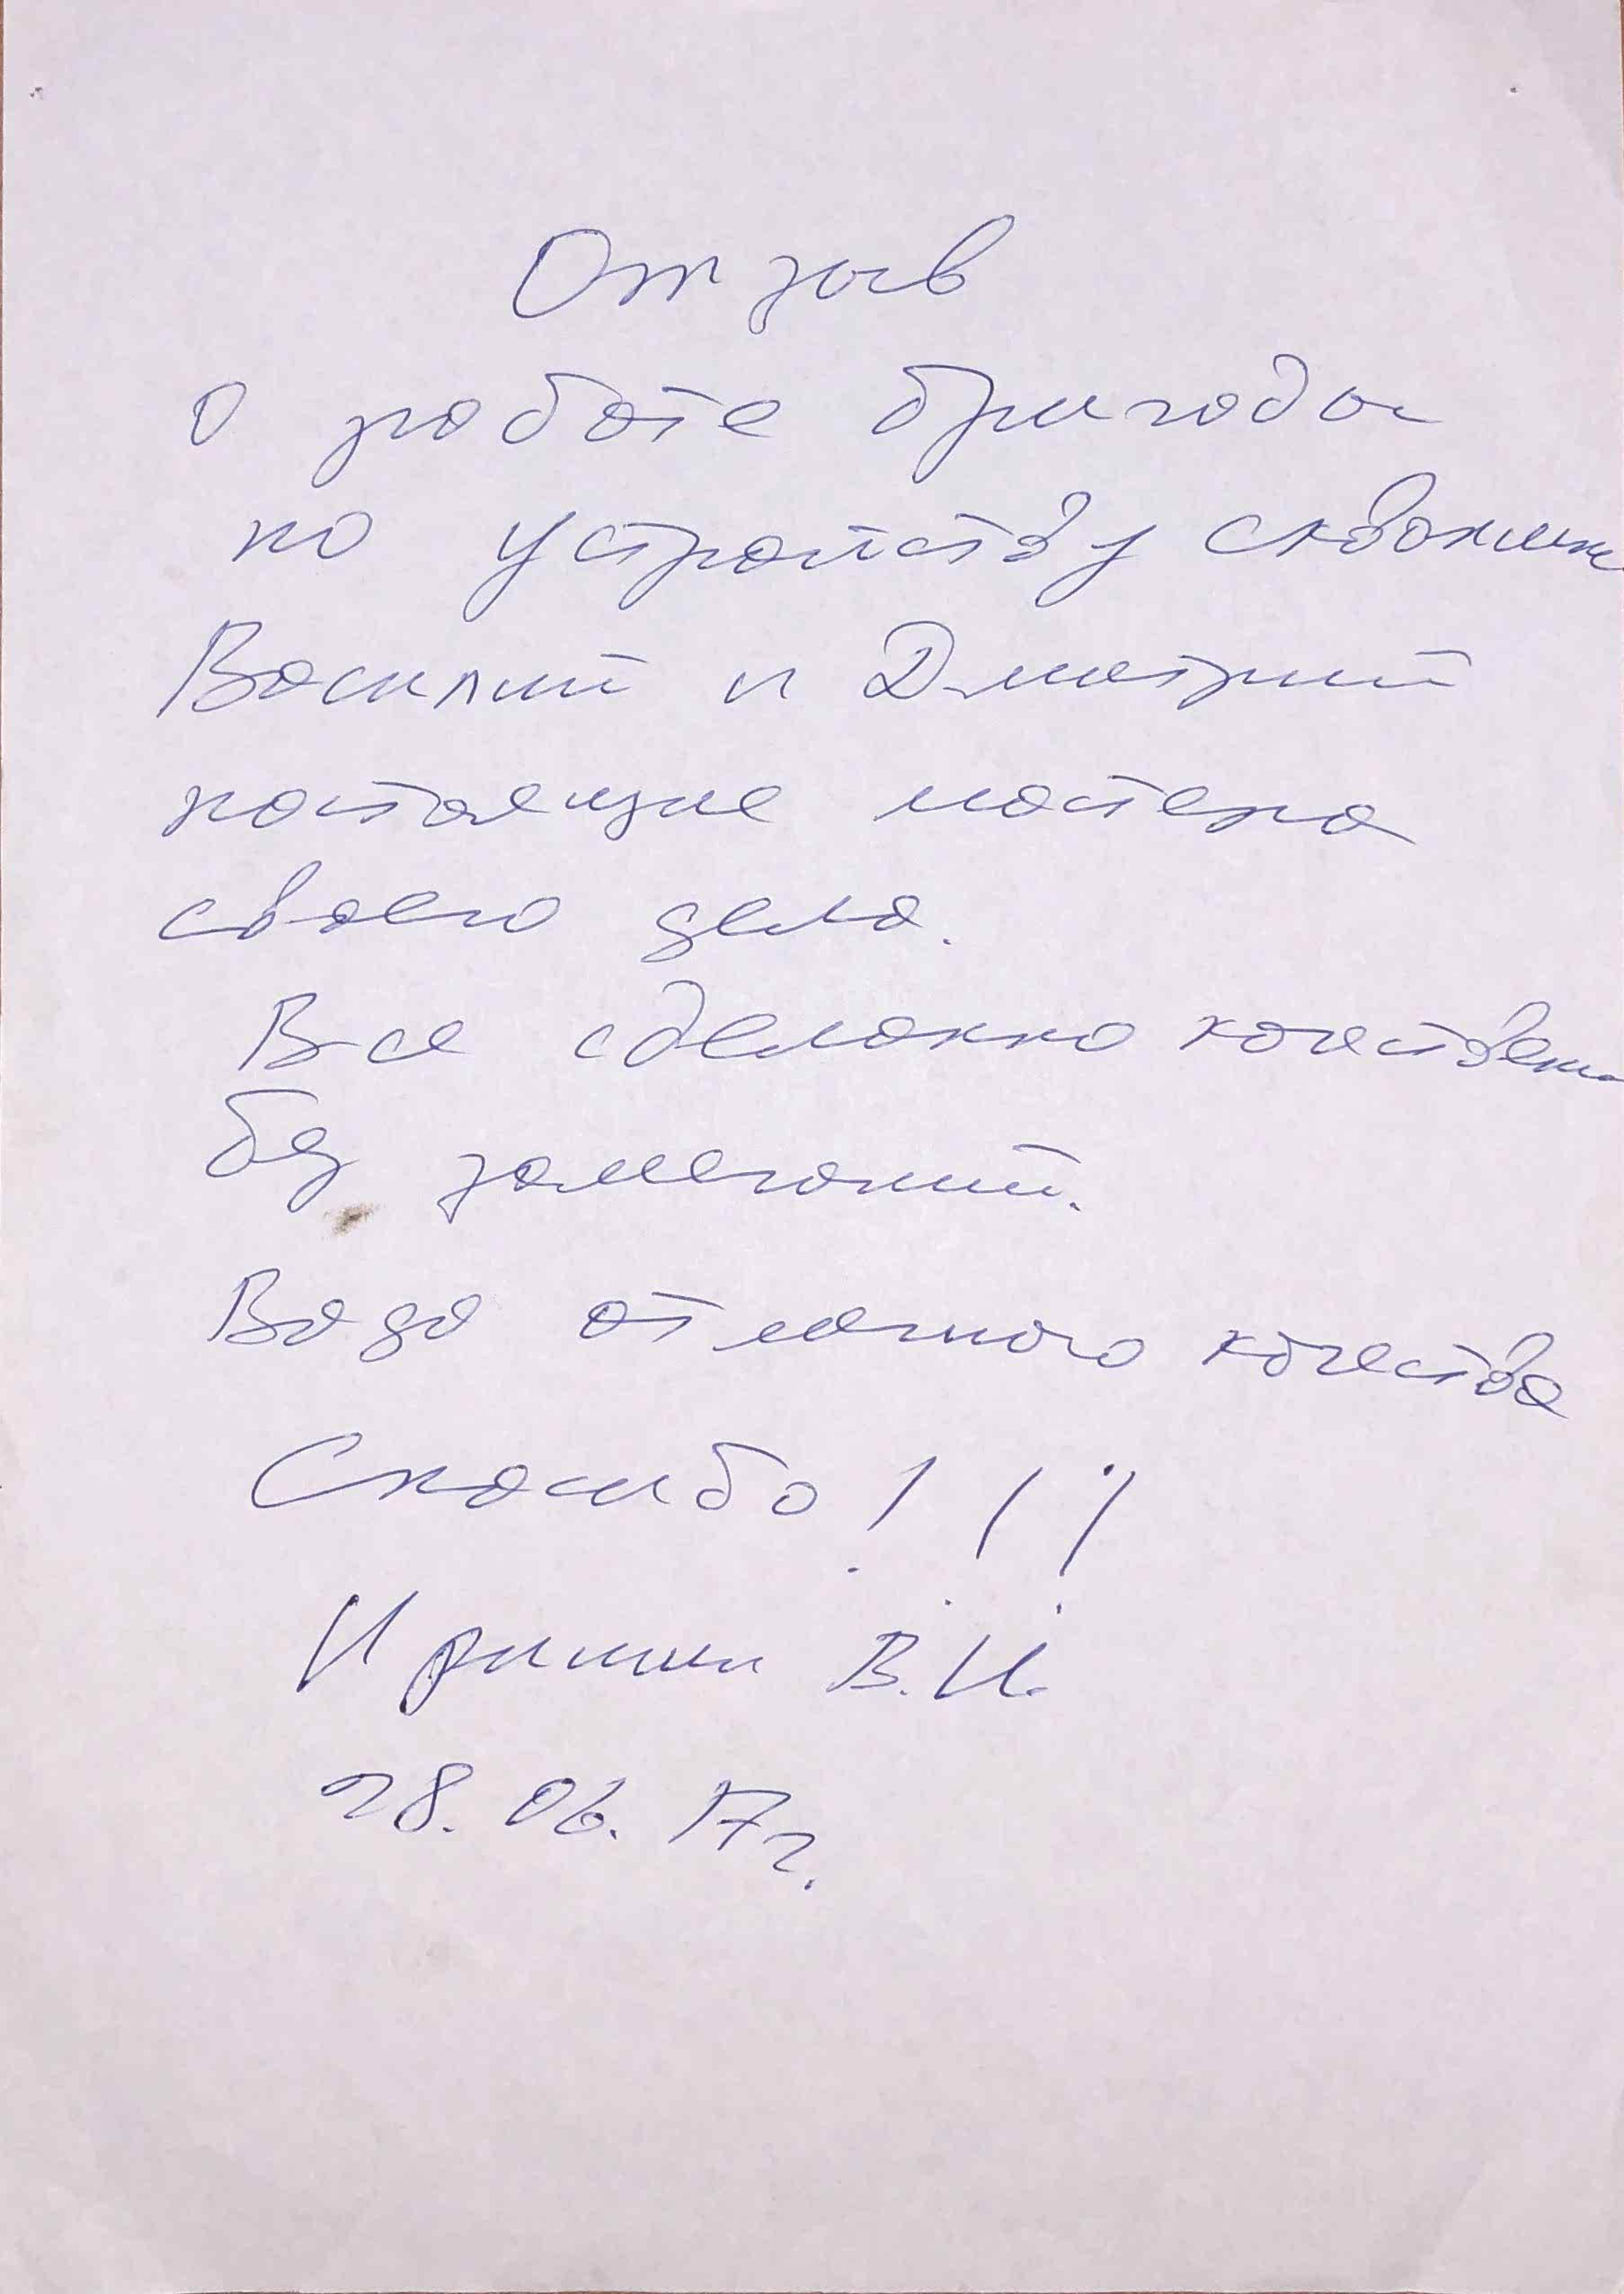 Отзыв
о работе бригады
по устройству скважин
Василий и Дмитрий
настоящие мастера
своего дела.
Все сделанно качествен
без замечаний.
Вода отличного качества
Спасибо!!!
В.И.
28.06.17г.